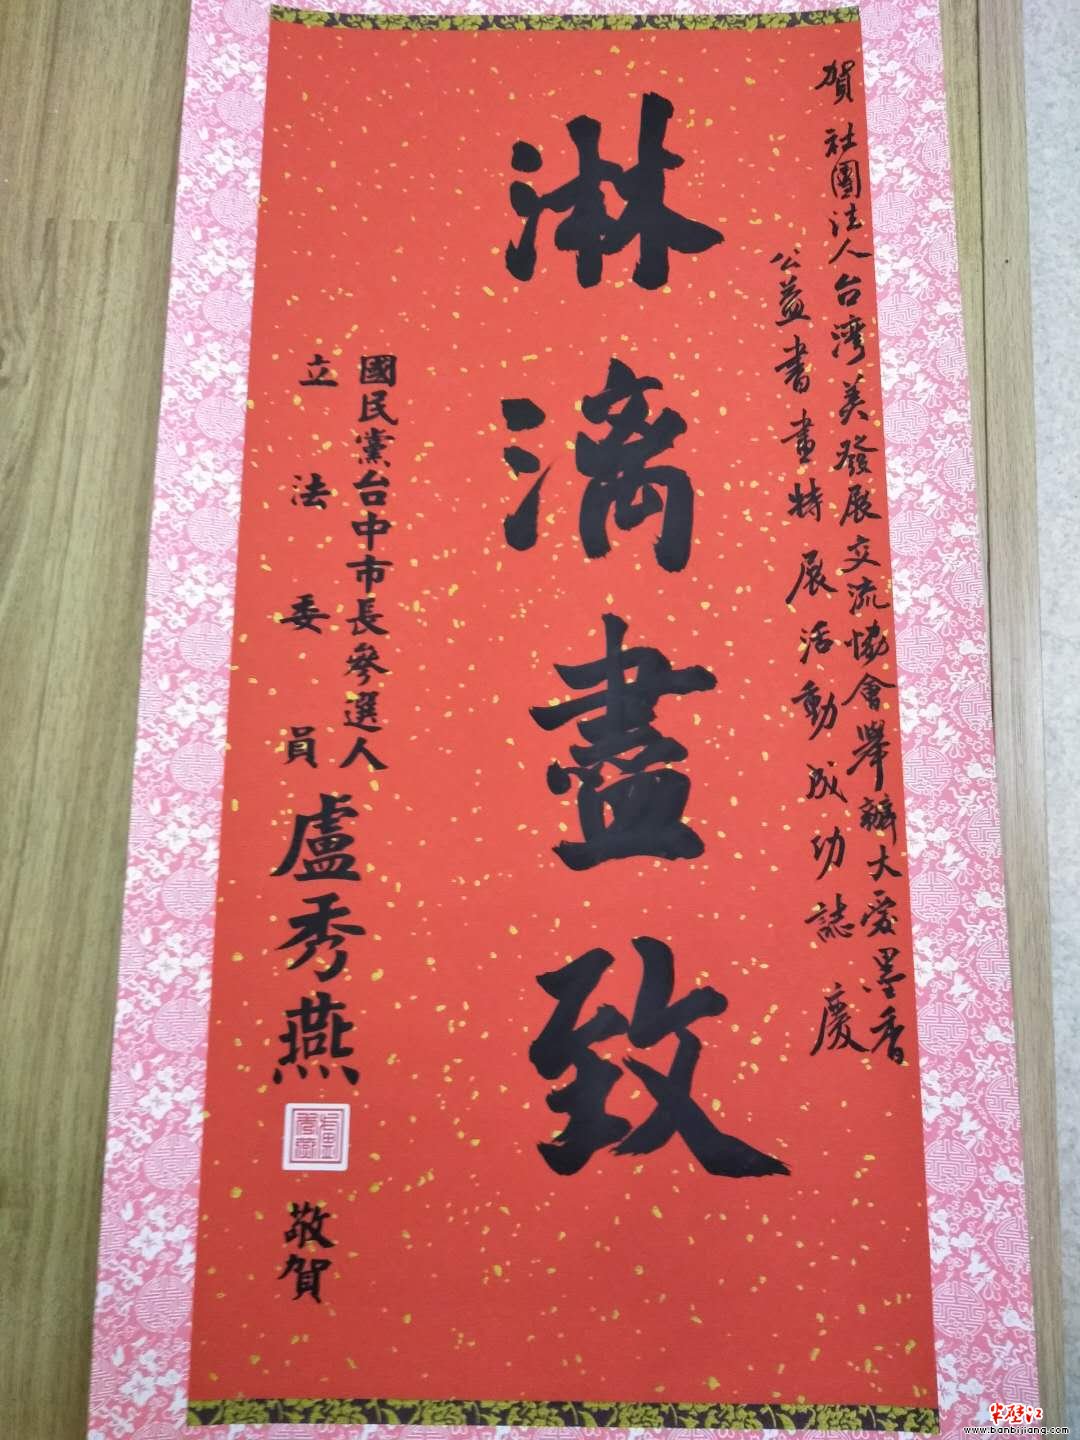 賀 社團法人台灣美發展交流協會舉辦大愛墨香
公益書畫特展活動成功誌慶
淋漓盡致
國民黨台中市長參選人
立法委員 盧秀燕
敬賀
半壁江
www.banbijiang.com